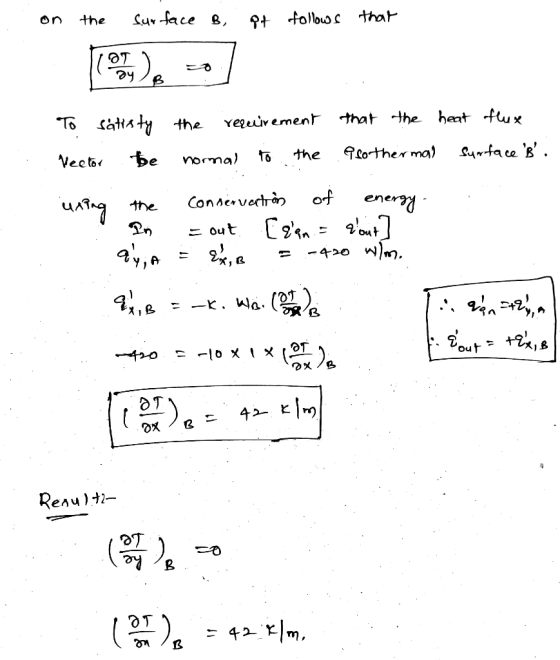 on the surface B, it follows that
(∂T/∂y)B = 0
To satisfy the requirement that the heat flux
Vector be normal to the isothermal surface 'B'.
using the conservation of energy.
In = out [q'in = q'out]
q'y,A = q'x,B = -420 W/m.
q'x,B = -K. WB. (∂T/∂x)B
∴ q'in = +q'y,A
∴ q'out = +q'x,B
-420 = -10 x 1 x (∂T/∂x)B
(∂T/∂x)B = 42 K/m
Result:-
(∂T/∂y)B = 0
(∂T/∂x)B = 42 K/m.